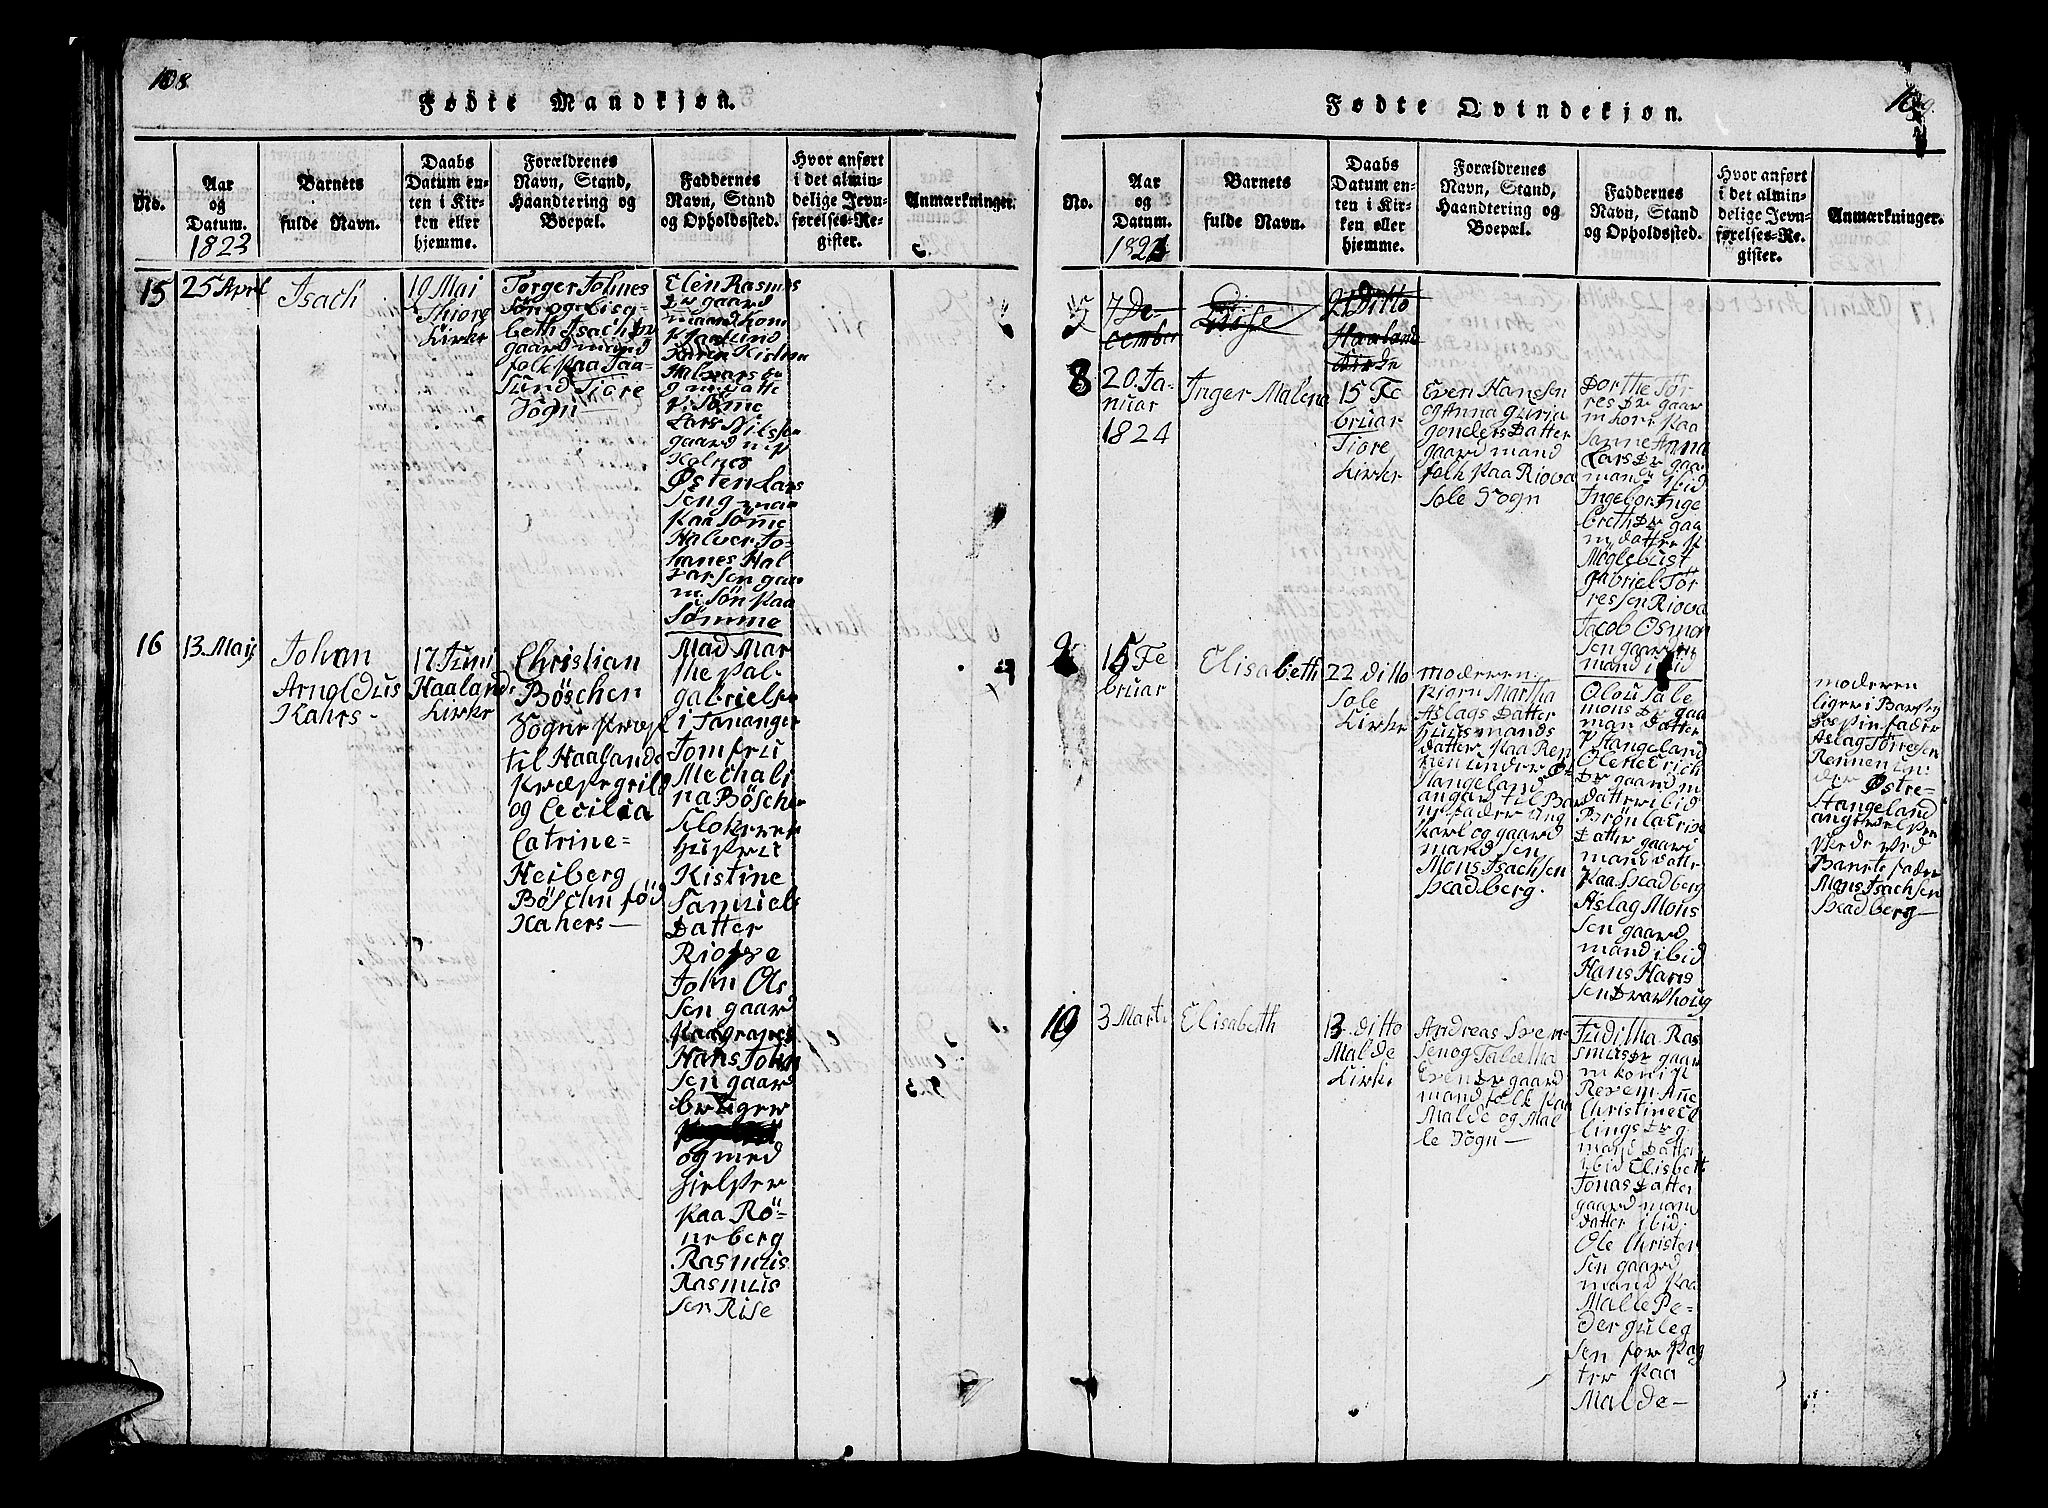 108
Fødte Mandkjøn.
No.
Aar
og
Datum.
1823
Barnets
fulde Navn.
Daabs
Datum en-
ten i Kir-
ken eller
hjemme.
Forældrenes
Navn, Stand,
Haandtering og
Boepæl.
Faddernes
Navn, Stand
og Opholdssted.
Hvor anført
i det almin-
delige Jevn-
førelses-Re-
gister.
Anmærkninger.
15
25 April
Isach
19 Mai
Thiore
Kirke
Torger Johnes
Søn og Lisa-
beth Isach Dr
gaard mand
folk paa Taa-
Sund Tiore
Sogn
Elen Rasmus
Dr gaard
mand Kone
Karen Kistne
Halvars Dr
g m datte
p. Sømme
Lars Nilssen
gaard m p
Kolnes
Østen Lars
Sen g man
Paa Sømme
Halver Jo-
hanes Hal
varsen gaar
m: Søn Paa
Sømme
16
13 Maj
Johan
Arnoldus
Kahrs-
17 Juni
Haaland
Kirke
Christian
Böschen
Sogne Præst
til Haalands
Præstegield
og Cecilia
Catrine-
Heiberg
Böschn föd
Kahers-
Mad Mar
the Sal-
gabrielsen
i Tananger
Jomfru
Mechali
na Böschen
Klokerer
Hustru
Kistine
Samuiels
Datter
Risse
John Ols
Sen gaard
Hans Johan
Sen gaar
bruger
og med
hielper
Paa Rö-
neberg
Rasmus
Rasmus
sen Rise
109
Fødte Qvindekjøn.
No.
Aar
og
Datum.
1824
Barnets
fulde Navn.
Daabs
Datum en-
ten i Kir-
ken eller
hjemme.
Forældrenes
Navn, Stand,
Haandtering og
Boepæl.
Faddernes
Navn, Stand
og Opholdssted.
Hvor anført
i det almin-
delige Jevn-
førelses-Re-
gister.
Anmærkninger.
7
7 De-
cember
21 Ditto
Haaland
Kirke
8
20. Ja-
nuar
1824
Inger Malena
15 Fe
bruar
Tiore
Kirke
Even Hansen
og Anna Guria
gonders Datter
gaard mand
folk Paa Riova
Sole Sogn
Dorthe Tør
res Dr gaar
m Kone Paa
Sanne Anna
Lars Dr gaa
mand ibid
Ingebor Inge
breth Dr gaa
m datter P
Møglebust
gabriel Tør
ressen Riova
Jacob Osmon
sen gaard
mand ibid
9
15 Fe
bruar
Elisabeth
22 ditto
Sole
Kirke
moderen
Pigen Martha
Aslags Datter
Huusmands
datter Paa Ren
nen under Øst
Stangeland
angav til Bar
nefader Ung
Karl og gaard
mand Sen
Mons Isachsen
Skadberg.
Olou Sale
mons Dr gaa
man Datter
P Stangeland
Olene Erich
Dr gaard m
datter ibid
Brønla Erise
Datter gaard
mand datter
Paa Skadberg
Aslag Mons
Sen gaard
mand ibid
Hans Hans
sen Kravhoug
moderen
liger i Barsel
hos sin fader
Aslag Tørresen
Rennen un:
der Østre-
Stangeland
angivelsen
skede ved
Barnets fader
Mons Isachsen
Skadberg-
10
3 Marti
Elisabeth
13 ditto
Malde
Kirke
Andreas Sven-
Sen og Taletha
Even Dr gaard
mand folk Paa
Malde og Mal
le Sogn-
Juditha Ras
smus Dr gaar
m kone P
Revem Ane
Christine El
lings Dr g
mand Datter
ibid Elisbeth
Jonas Datter
gaard mand
datter ibid.
Ole Christen
Sen gaard
mand Paa
Malle Pe-
der Guleg
sen for Pag
ter Paa
Malde-